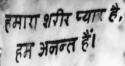 हमारा शरीर प्यार है,
हम अनन्त हैं।